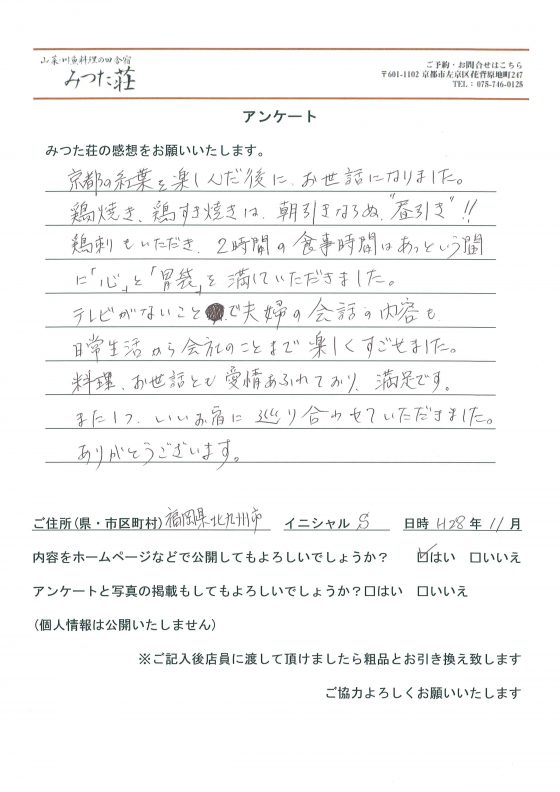 山菜・川魚料理の田舎宿
みつた荘
ご予約・お問合せはこちら
〒601-1102 京都市左京区花脊原地町247
TEL : 075-746-0125
アンケート
みつた荘の感想をお願いいたします。
京都の紅葉を楽しんだ後に、お世話になりました。
鶏焼き、鶏すき焼きは、朝引きならぬ、"昼引き"!!
鶏刺もいただき、2時間の食事時間はあっという間
に「心」と「胃袋」を満していただきました。
テレビがないことで夫婦の会話の内容も
日常生活から会社のことまで楽しくすごせました。
料理、お世話とも愛情あふれており、満足です。
また1つ、いいお宿に巡り合わせていただきました。
ありがとうございます。
ご住所(県・市区町村) 福岡県北九州市 イニシャル S 日時 H28年 11月
内容をホームページなどで公開してもよろしいでしょうか? ☑はい □いいえ
アンケートと写真の掲載もしてもよろしいでしょうか?□はい □いいえ
(個人情報は公開いたしません)
※ご記入後店員に渡して頂けましたら粗品とお引き換え致します
ご協力よろしくお願いいたします